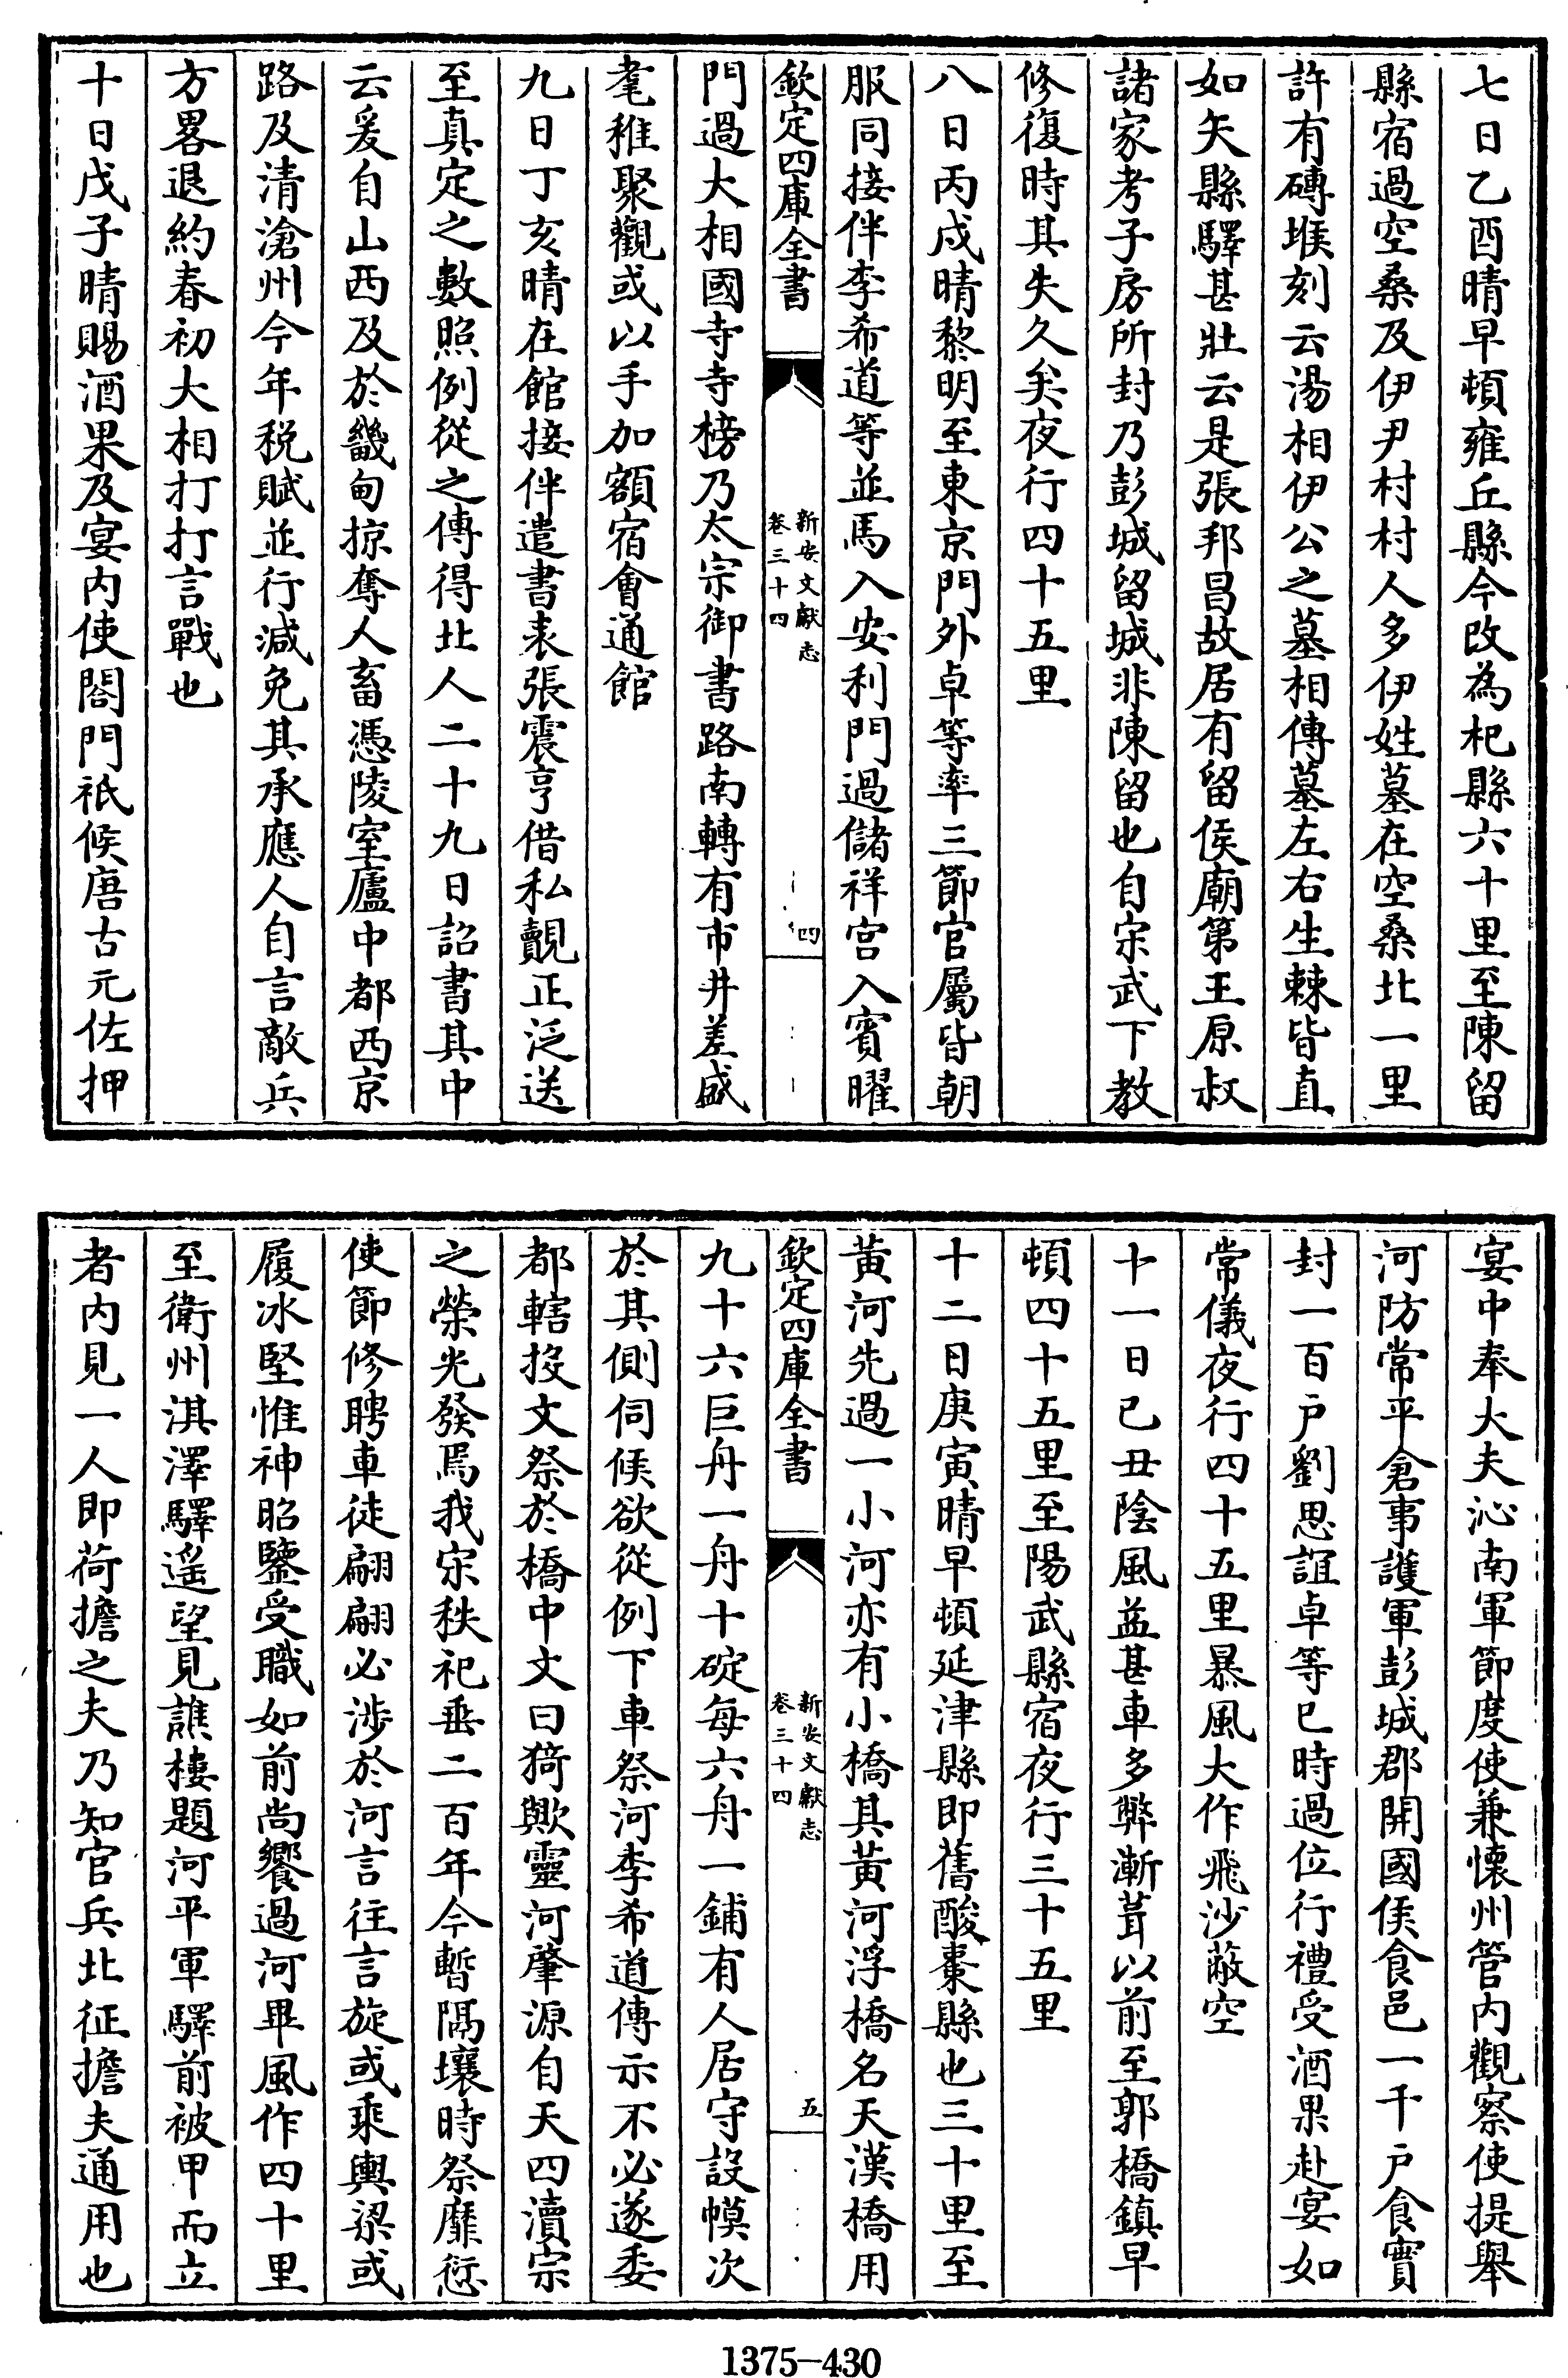 七日乙酉晴早頓雍丘縣今改為杞縣六十里至陳留
縣宿過空桑及伊尹村村人多伊姓墓在空桑北一里
許有磚堠刻云湯相伊公之墓相傳墓左右生棘皆直
如矢縣驛甚壯云是張邦昌故居有留侯廟第王原叔
諸家考子房所封乃彭城留城非陳留也自宋武下教
修復時其失久矣夜行四十五里
八日丙戍晴黎明至東京門外卓等率三節官屬皆朝
服同接伴李希道等並馬入安利門過儲祥宫入賓曜
欽定四庫全書
新安文獻志
卷三十四
四
門過大相國寺寺榜乃太宗御書路南轉有市井差盛
耄稚聚觀或以手加額宿會通館
九日丁亥晴在館接伴遣書表張震亨借私覿正泛送
至真定之數照例從之傳得北人二十九日詔書其中
云爰自山西及於畿甸掠奪人畜憑陵室廬中都西京
路及清滄州今年税賦並行減免其承應人自言敵兵
方畧退約春初大相打打言戰也
十日戊子晴賜酒果及宴内使閤門祇候唐古元佐押
宴中奉大夫沁南軍節度使兼懷州管内觀察使提舉
河防常平倉事護軍彭城郡開國侯食邑一千户食實
封一百户劉思誼卓等巳時過位行禮受酒果赴宴如
常儀夜行四十五里暴風大作飛沙蔽空
十一日已丑陰風益甚車多弊漸葺以前至郭橋鎮早
頓四十五里至陽武縣宿夜行三十五里
十二日庚寅晴早頓延津縣即舊酸棗縣也三十里至
黄河先過一小河亦有小橋其黄河浮橋名天漢橋用
欽定四庫全書
新安文獻志
卷三十四
五
九十六巨舟一舟十碇每六舟一鋪有人居守設幙次
於其側伺候欲從例下車祭河李希道傳示不必遂委
都轄投文祭於橋中文曰猗歟靈河肇源自天四瀆宗
之榮光發焉我宋秩祀垂二百年今暫隔壤時祭靡愆
使節修聘車徒翩翩必涉於河言往言旋或乘輿梁或
履冰堅惟神昭鑒受職如前尚饗過河畢風作四十里
至衛州淇澤驛遥望見譙樓題河平軍驛前被甲而立
者内見一人即荷擔之夫乃知官兵北征擔夫通用也
1375-430